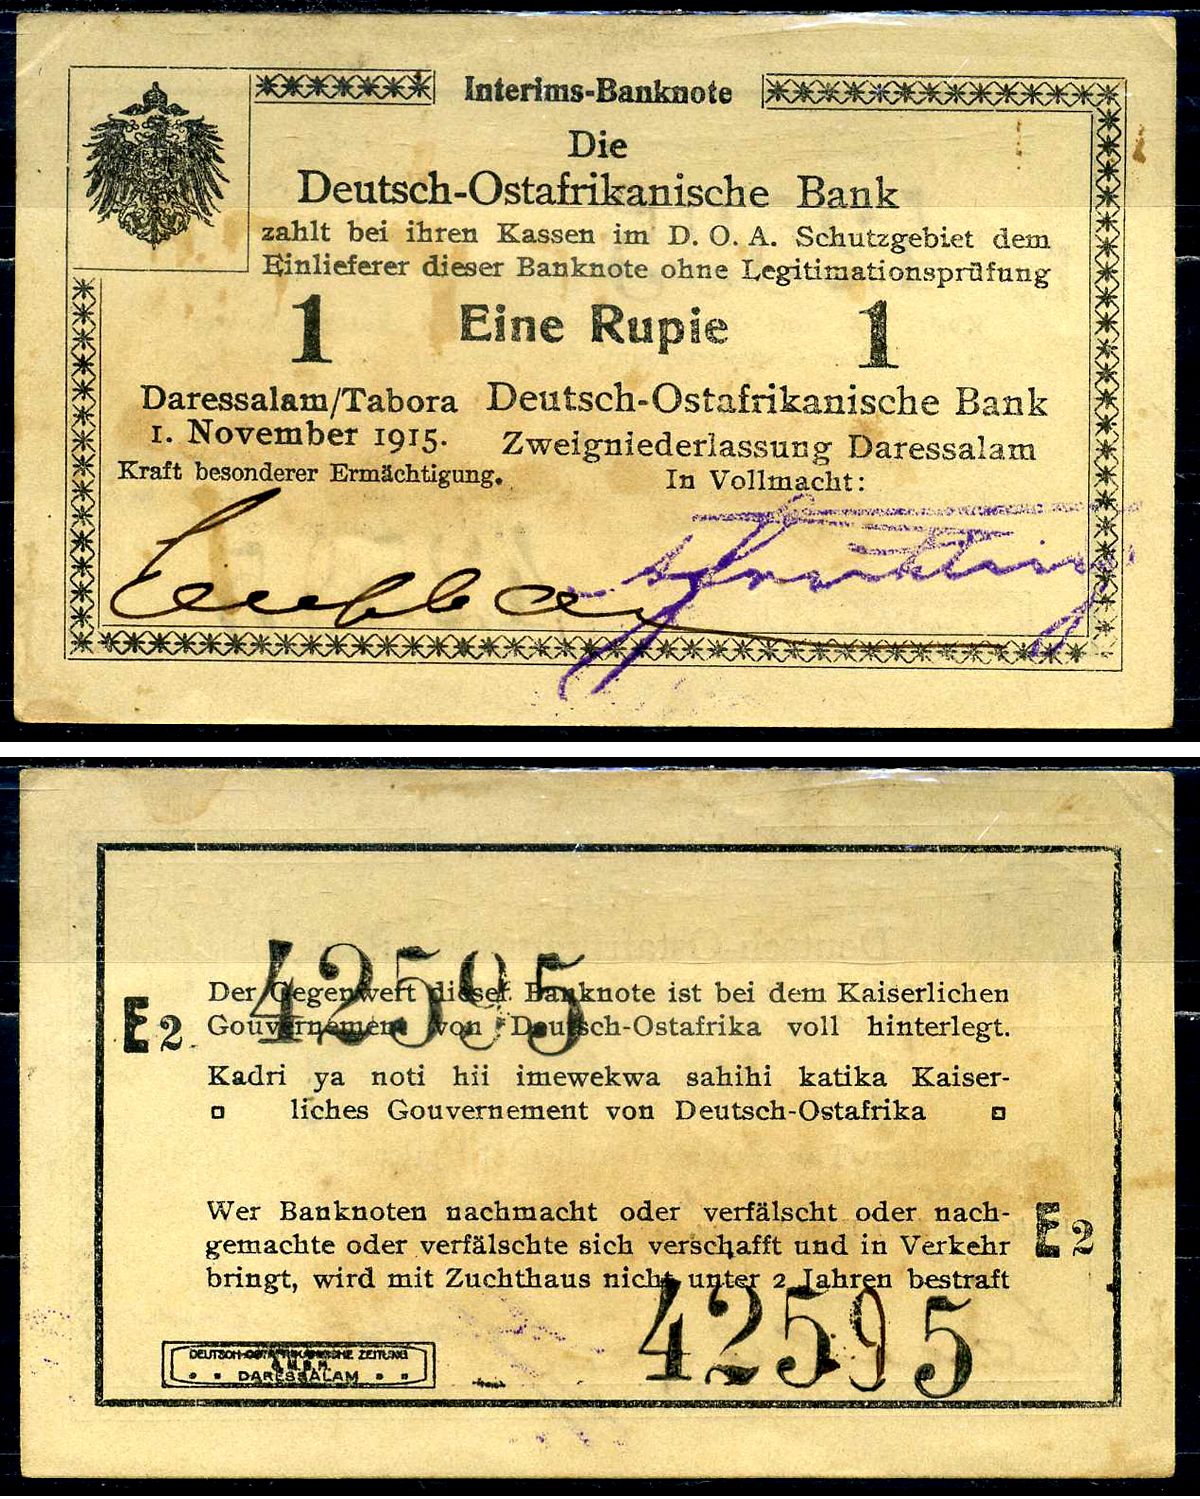 Interims-Banknote
Die
Deutsch-Ostafrikanische Bank
zahlt bei ihren Kassen im D. O. A. Schutzgebiet dem
Einlieferer dieser Banknote ohne Legitimationsprüfung
1 Eine Rupie 1
Daressalam/Tabora
1. November 1915.
Kraft besonderer Ermächtigung.
Deutsch-Ostafrikanische Bank
Zweigniederlassung Daressalam
In Vollmacht:
42595
Der Gegenwert dieser Banknote ist bei dem Kaiserlichen
Gouvernement von Deutsch-Ostafrika voll hinterlegt.
E2
Kadri ya noti hii imewekwa sahihi katika Kaiser-
liches Gouvernement von Deutsch-Ostafrika
Wer Banknoten nachmacht oder verfälscht oder nach-
gemachte oder verfälschte sich verschafft und in Verkehr
bringt, wird mit Zuchthaus nicht unter 2 Jahren bestraft
E2
42595
DEUTSCH-OSTAFRIKANISCHE ZEITUNG
G.M.B.H.
DARESSALAM